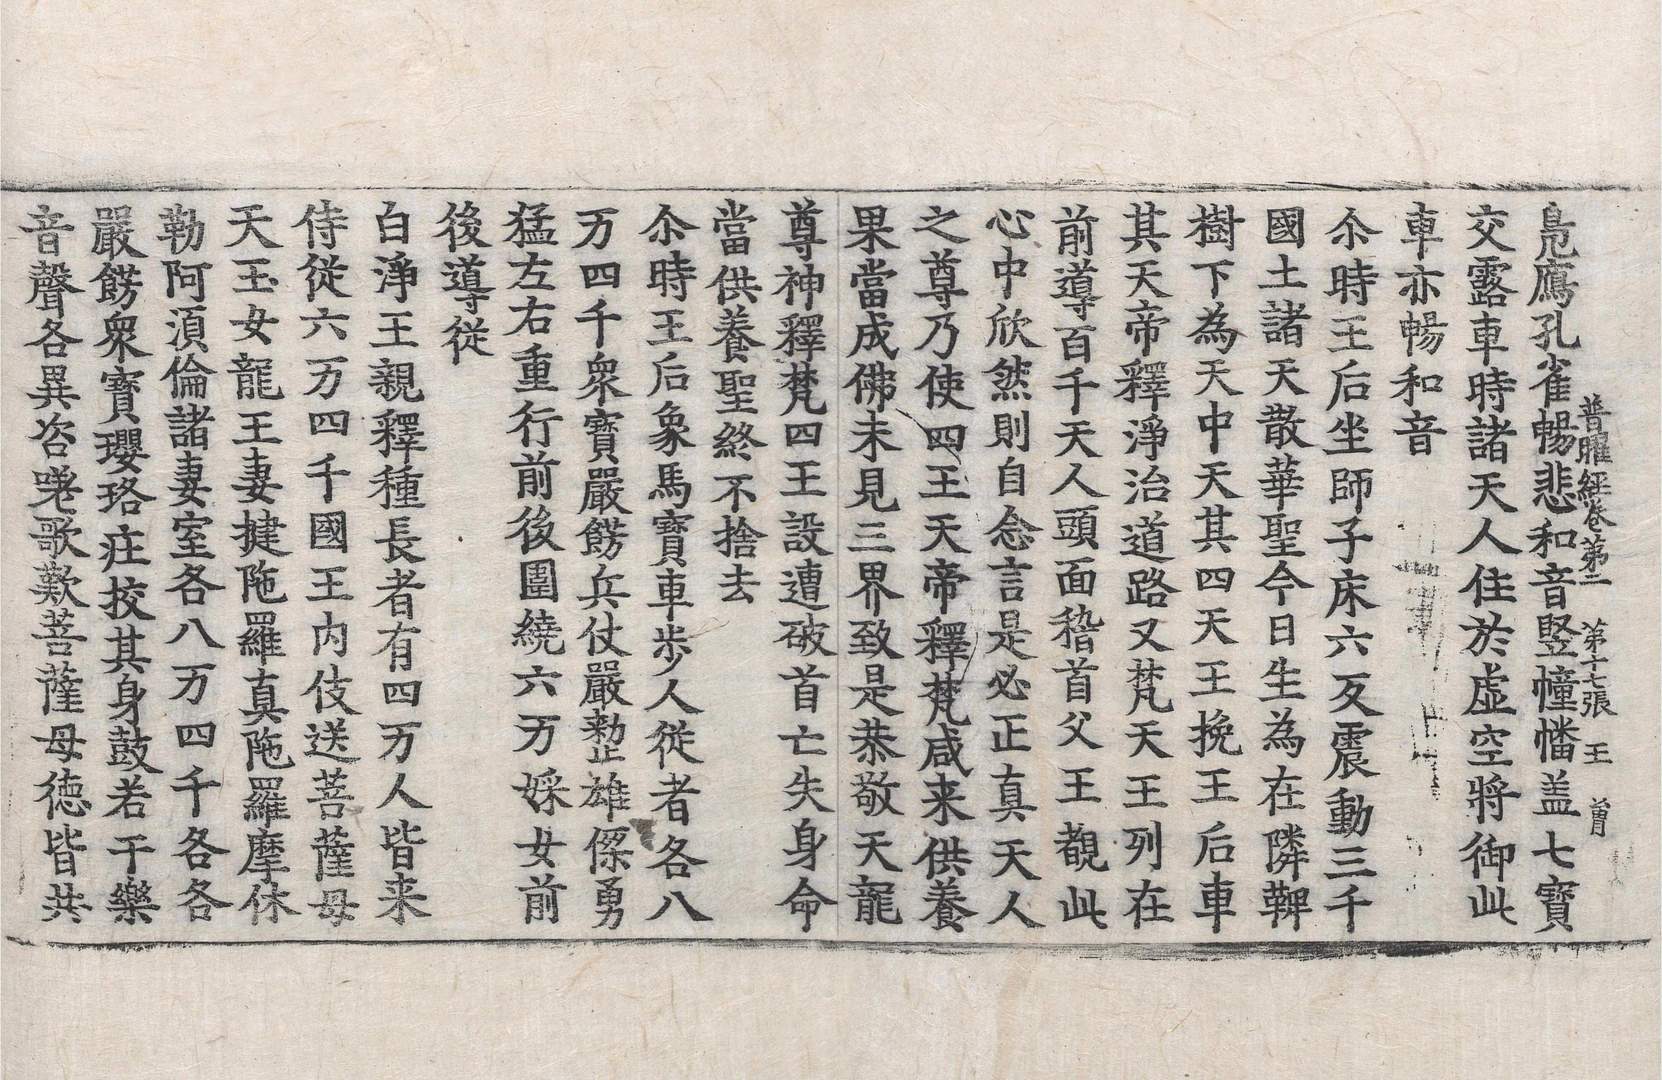 普曜經卷第二　第十七張　王
鳧鴈孔雀暢悲和音豎幢幡盖七寶
交露車時諸天人住於虛空將御此
車亦暢和音
尒時王后坐師子床六反震動三千
國土諸天散華聖今日生為在隣鞞
樹下為天中天其四天王挽王后車
其天帝釋淨治道路又梵天王列在
前導百千天人頭面稽首父王覩此
心中欣然則自念言是必正真天人
之尊乃使四王天帝釋梵咸来供養
果當成佛未見三界致是恭敬天龍
尊神釋梵四王設遭破首亡失身命
當供養聖終不捨去
尒時王后象馬寶車步人從者各八
万四千衆寶嚴餝兵仗嚴勑正雄傑勇
猛左右重行前後圍繞六万婇女前
後導從
白淨王親釋種長者有四万人皆来
侍從六万四千國王内伎送菩薩母
天玉女龍王妻揵陁羅真陁羅摩休
勒阿須倫諸妻室各八万四千各各
嚴餝衆寶瓔珞莊挍其身鼓若干樂
音聲各異咨嗟歌歎菩薩母德皆共